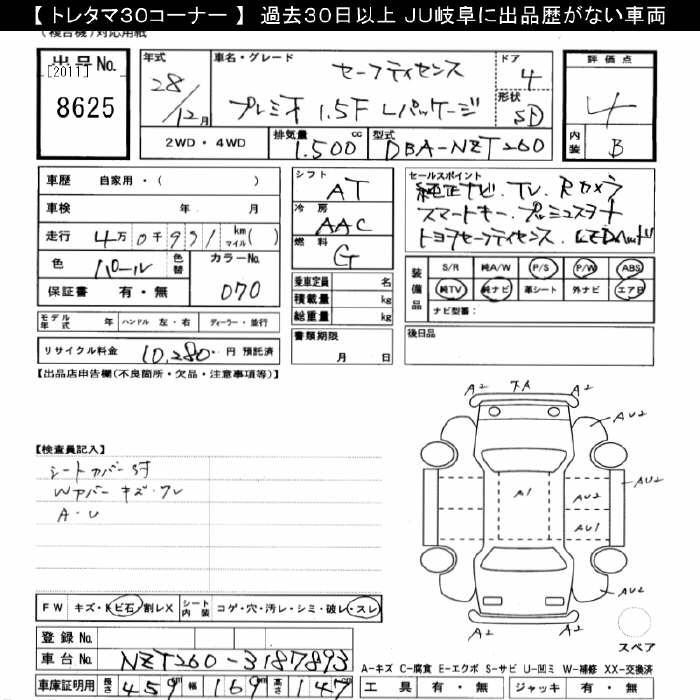 【トレタマ30コーナー】 過去30日以上 JU岐阜に出品歴がない車両
(複合機)対応用紙
出品No.
[2011]
8625
年式
28/12月
車名・グレード
セーフティセンス
プレミオ 1.5F Lパッケージ
ドア
4
形状
SD
評価点
4
内装
B
2WD・4WD
排気量
1.500 cc
型式
DBA-NZT260
車歴 自家用・( )
車検 年 月
走行 4万0千991 km マイル( )
色 パール 色替 カラーNo. 070
保証書 有・無
シフト AT
冷房 AAC
燃料 G
乗車定員 名
積載量 kg
総重量 kg
セールスポイント
純正ナビ.TV.Rカメラ
スマートキー.プッシュスタート
トヨタセーフティセンス.
装備品 S/R 純A/W P/S P/W ABS
純TV 純ナビ 革シート 外ナビ エアB
ナビ型番:
モデル年式 年 ハンドル 左・右 ディーラー・並行
リサイクル料金 10,280 円 預託済
書類期限
月 日
後日品
【出品店申告欄(不良箇所・欠品・注意事項等)】
【検査員記入】
シートカバー付
Wカバーキズ・ワレ
A・U
A2 A2
AU2
A1
AU2
AU2
AU1
AU2
A2 A2
スペア
FW キズ・ヒ石 割レX シート内装 コゲ・穴・汚レ・シミ・破レ・スレ
登録No.
車台No. NZT260-3187893
A-キズ C-腐食 E-エクボ S-サビ U-凹ミ W-補修 XX-交換済
車庫証明用 長さ 459cm 幅 169cm 高さ 147cm
工具 有・無 ジャッキ 有・無